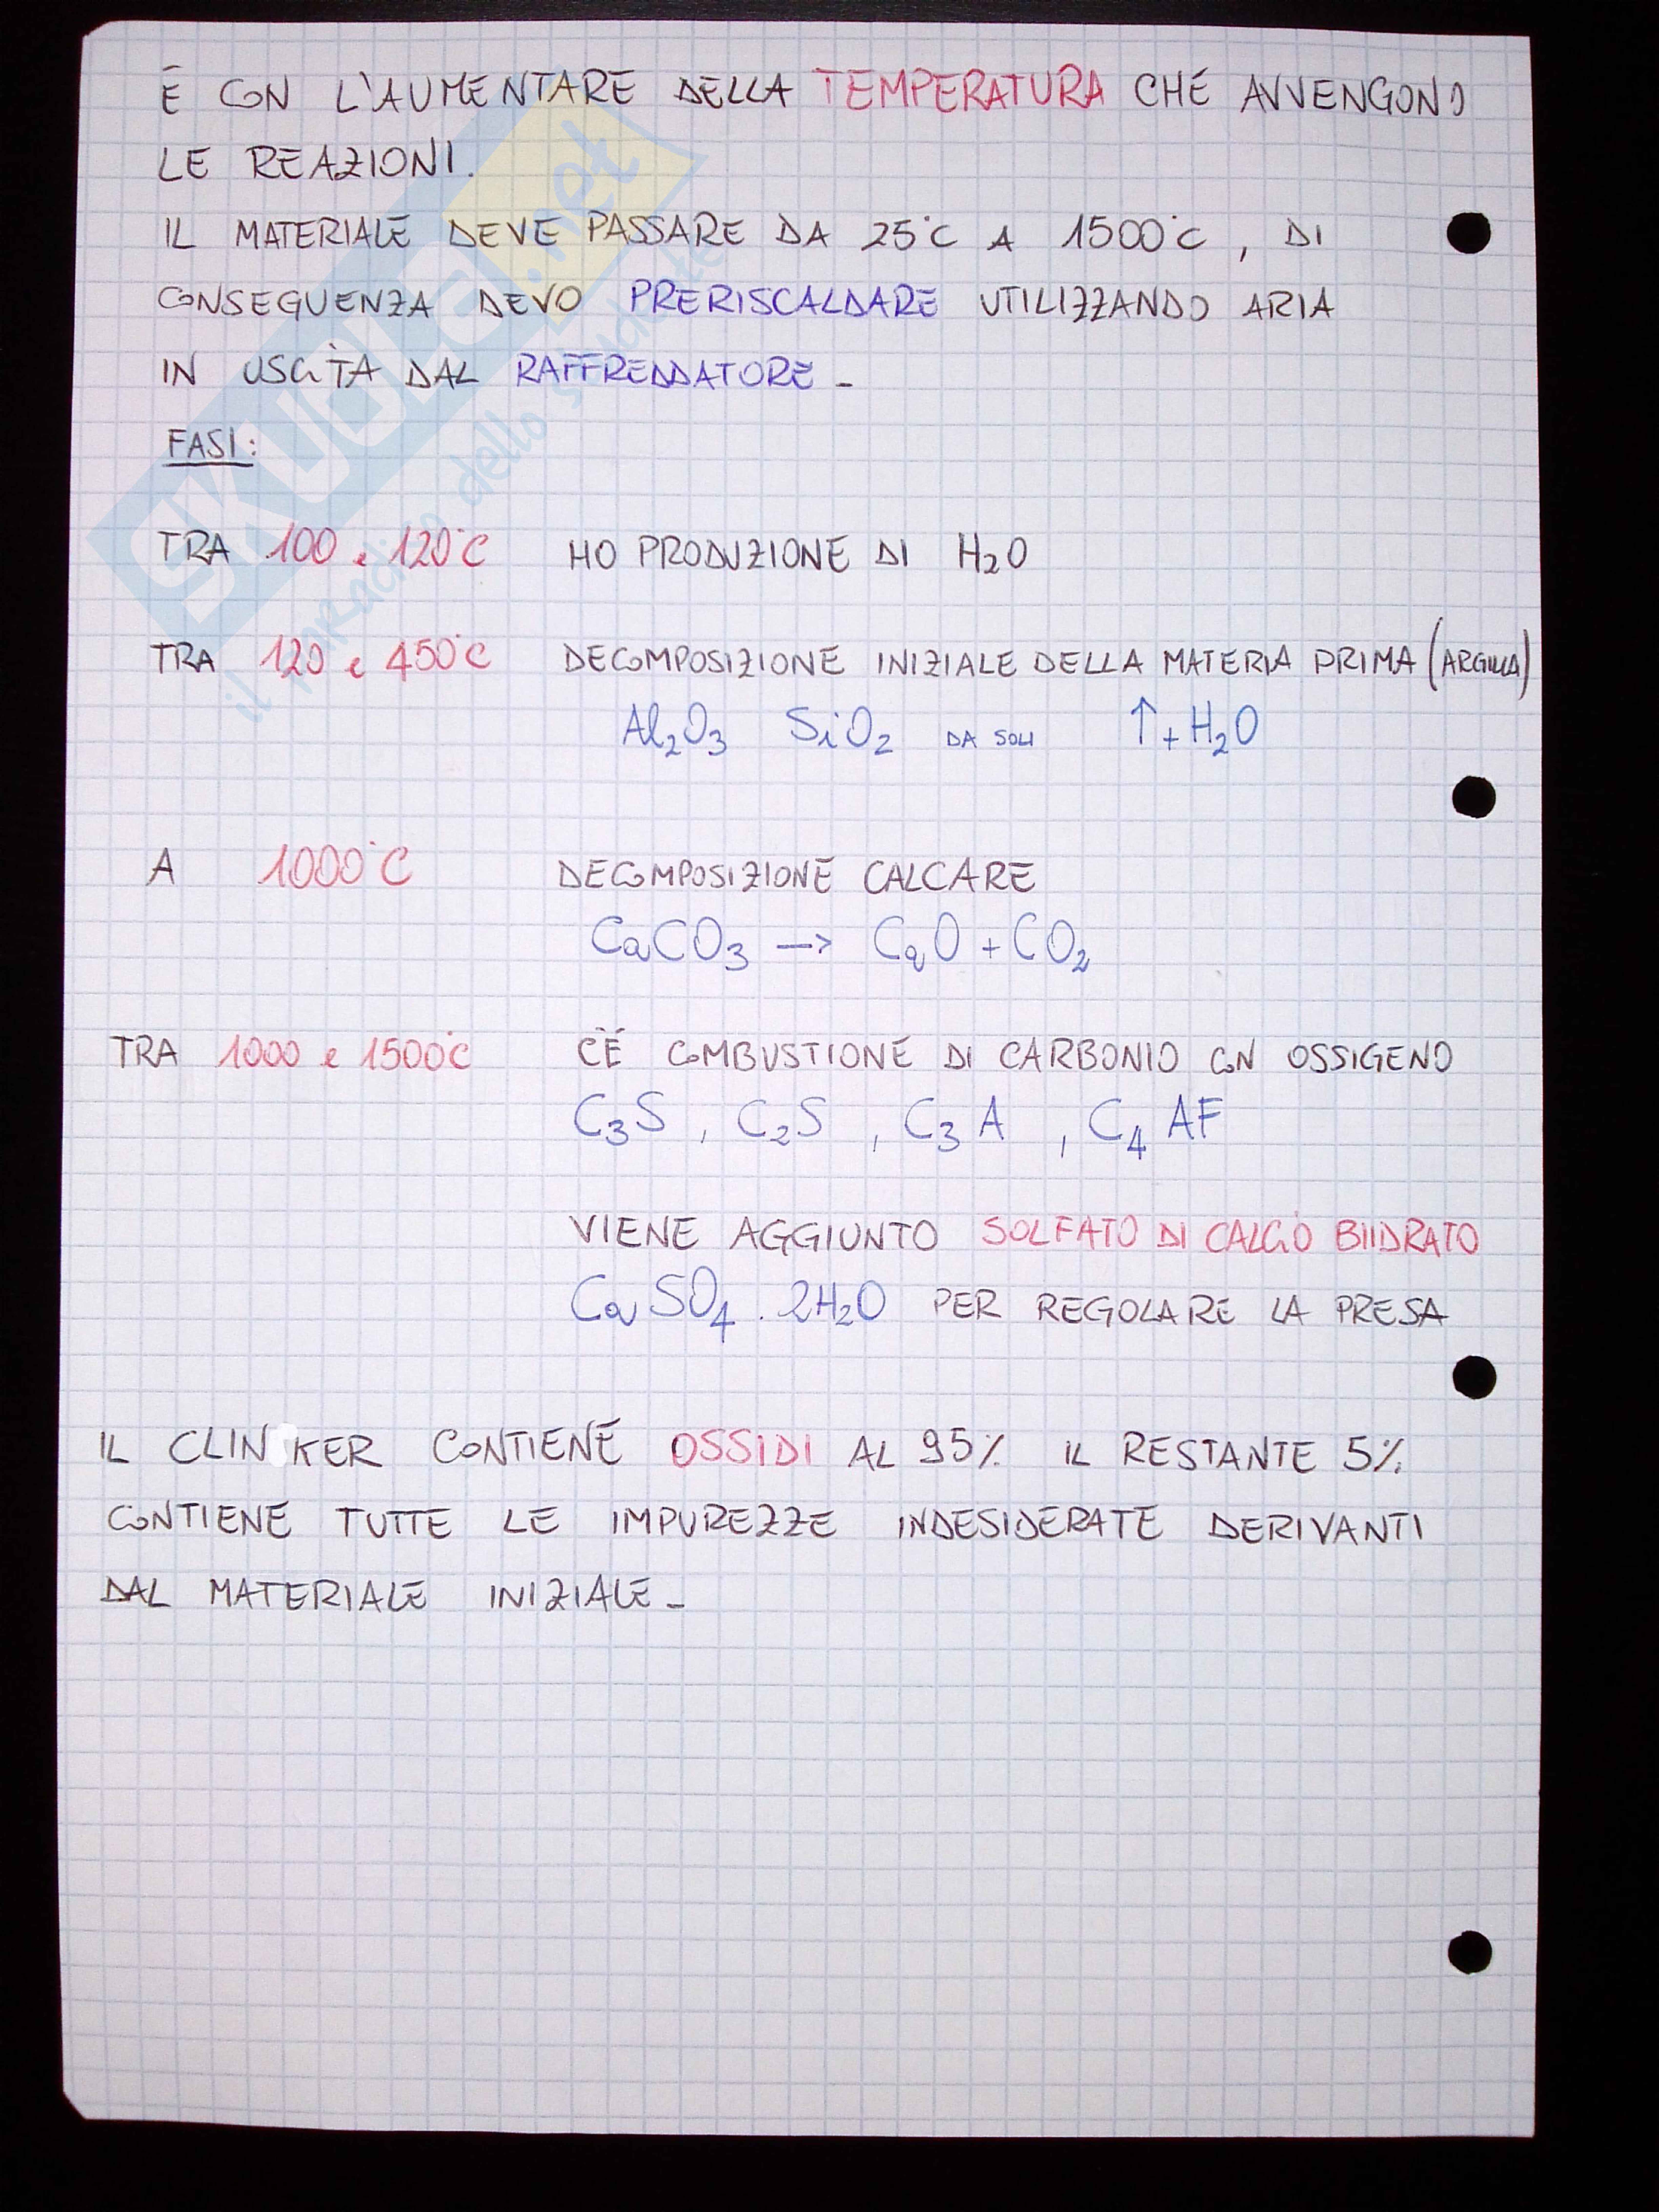 È CON L'AUMENTARE DELLA TEMPERATURA CHE AVVENGONO
LE REAZIONI.
IL MATERIALE DEVE PASSARE DA 25°C A 1500°C, DI
CONSEGUENZA DEVO PRERISCALDARE UTILIZZANDO ARIA
IN USCITA DAL RAFFREDDATORE -
FASI:
TRA 100 e 120°C HO PRODUZIONE DI H₂O
TRA 120 e 450°C DECOMPOSIZIONE INIZIALE DELLA MATERIA PRIMA (ARGILLA)
Al₂O₃ SiO₂ DA SOLI ↑ + H₂O
A 1000°C DECOMPOSIZIONE CALCARE
CaCO₃ → CaO + CO₂
TRA 1000 e 1500°C C'È COMBUSTIONE DI CARBONIO CON OSSIGENO
C₃S, C₂S, C₃A, C₄AF
VIENE AGGIUNTO SOLFATO DI CALCIO BIIDRATO
CaSO₄ . 2H₂O PER REGOLARE LA PRESA
IL CLINKER CONTIENE OSSIDI AL 95% IL RESTANTE 5%
CONTIENE TUTTE LE IMPUREZZE INDESIDERATE DERIVANTI
DAL MATERIALE INIZIALE -
SKUOLA.net
il paradiso dello studente